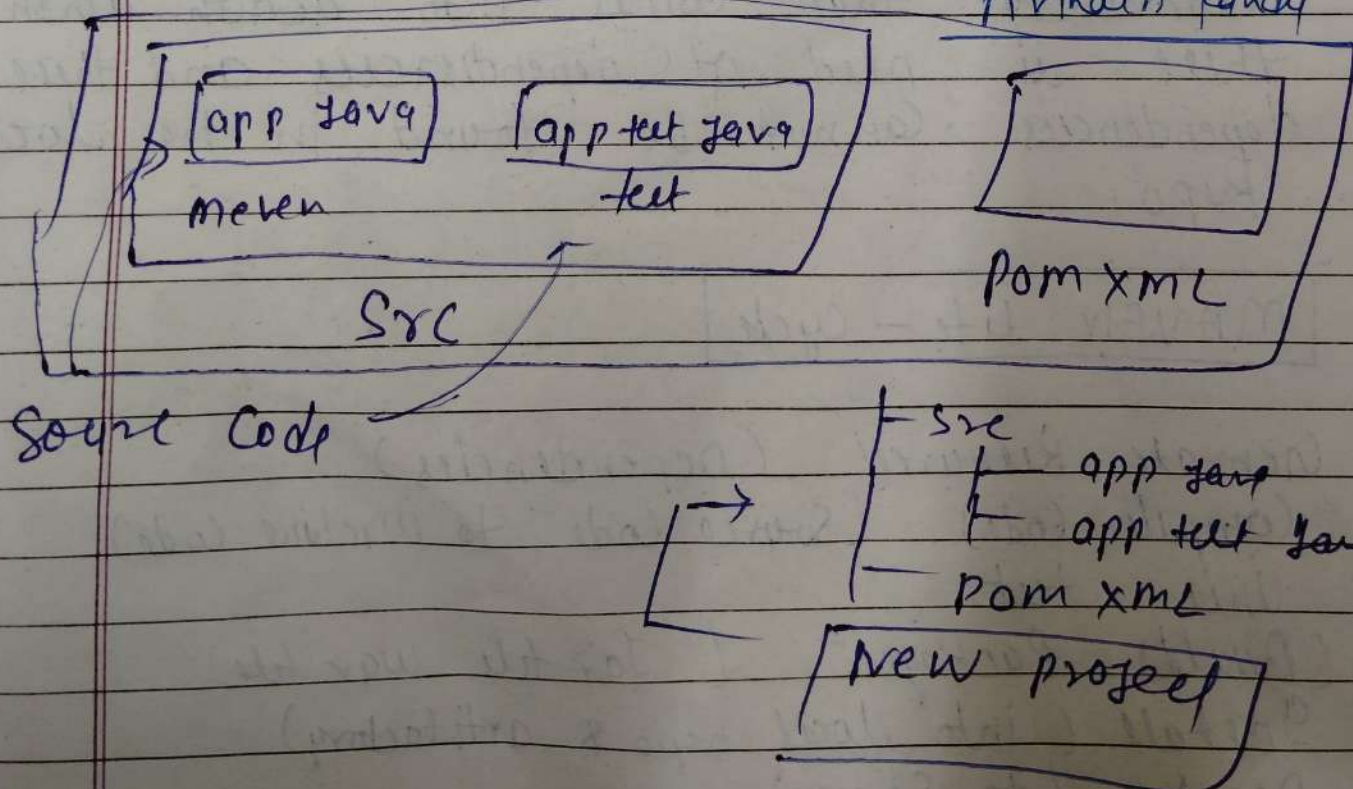 app Java
app test Java
meven
test
Pom XML
Src
Source Code
src
app Java
app test Jav
Pom XML
New project